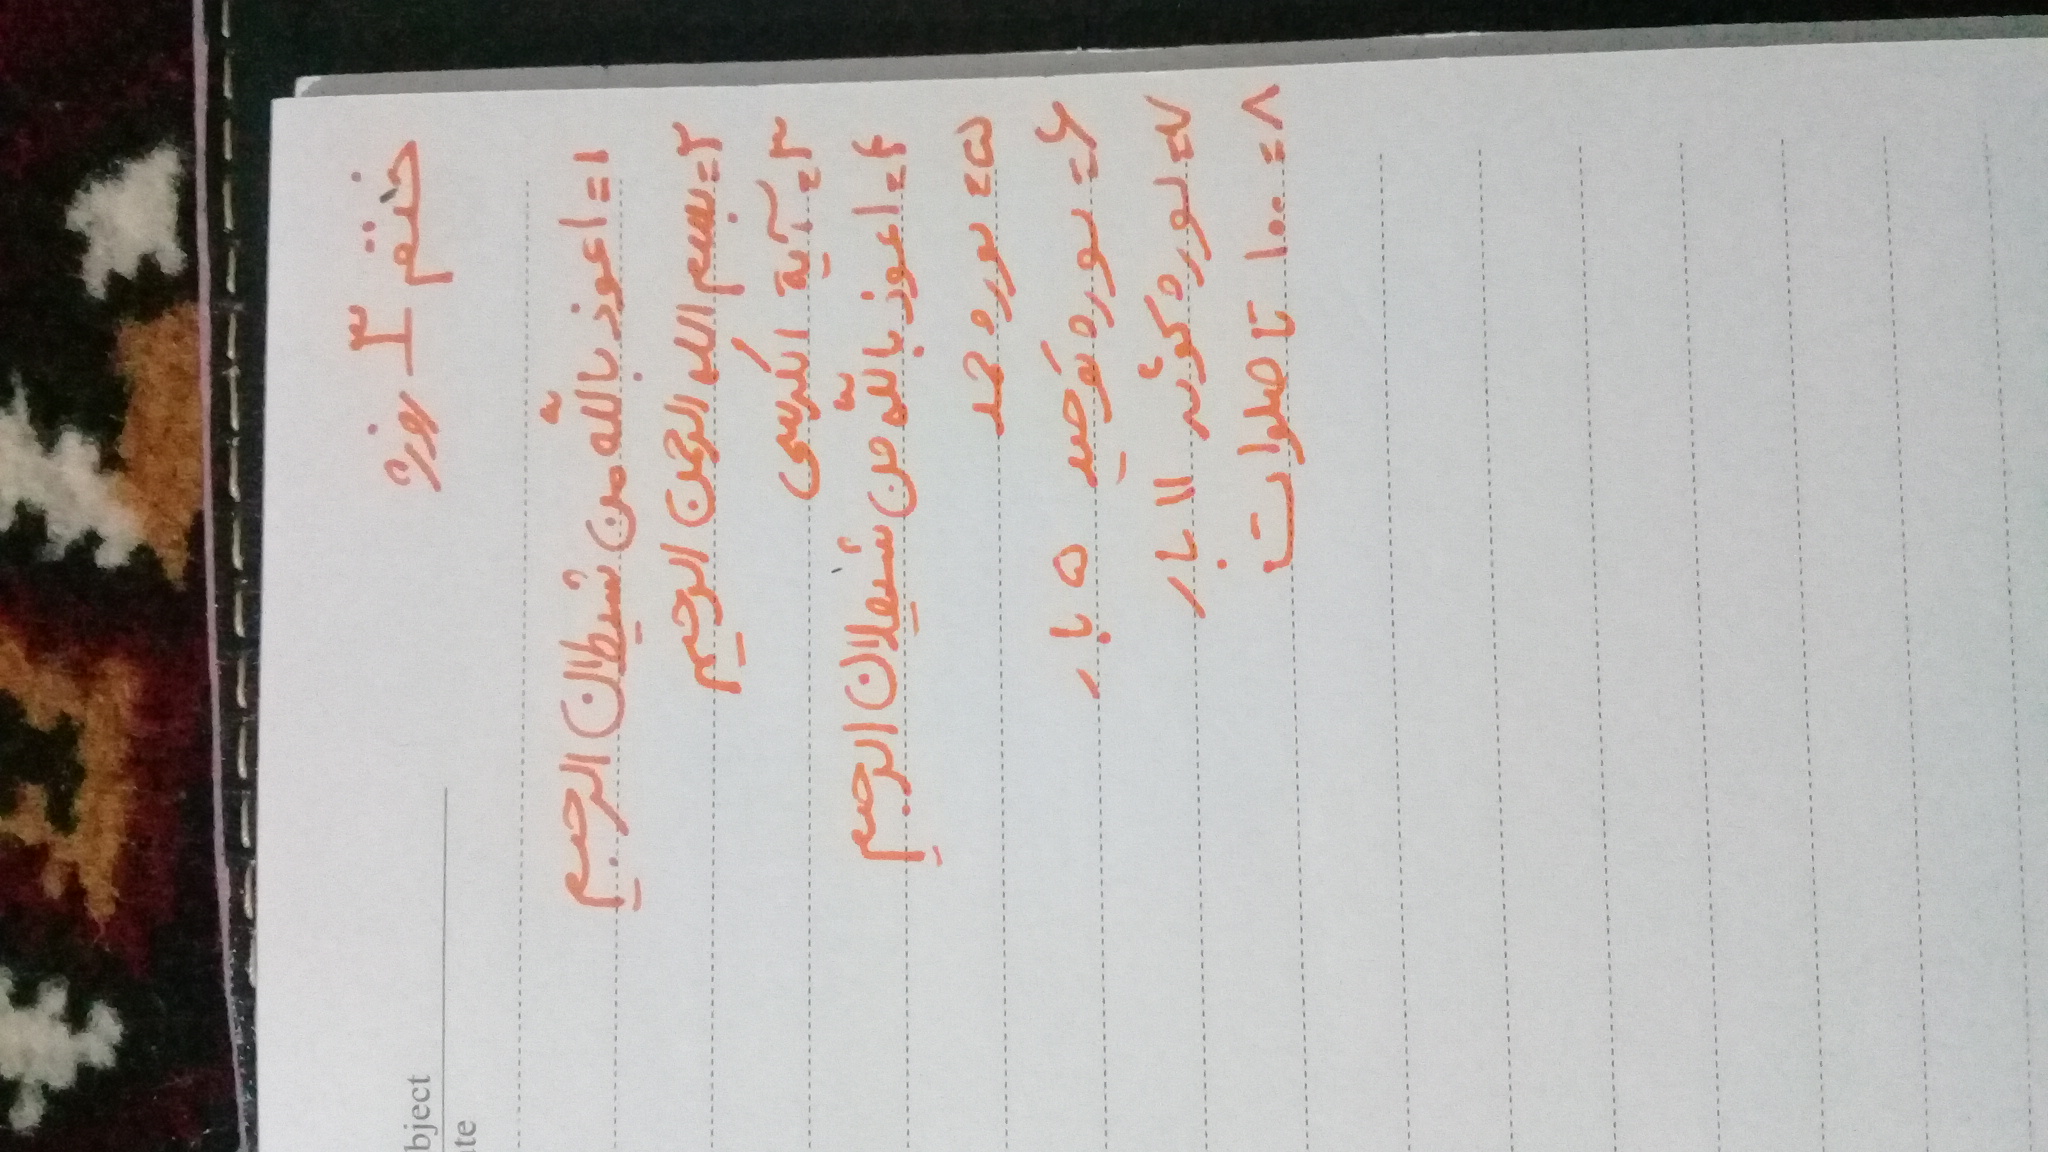 ختم ۳ روزه
۱= اعوذ بالله من شیطان الرجیم
۲= بسم الله الرحمن الرحیم
۳= آیة الکرسی
۴= اعوذ بالله من شیطان الرجیم
۵= سوره حمد
۶= سوره توحید ۵ بار
۷= سوره کوثر ۱۱ بار
۸= ۱۰۰ تا صلوات
bject
ate